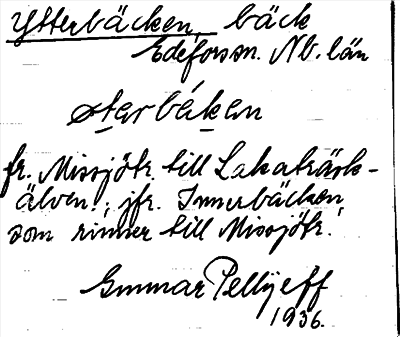 Ytterbäcken, bäck
Edeforssn. Nb. län
øtərbékən
fr. Missjötr. till Lakaträsk-
älven.; jfr. Innerbäcken,
som rinner till Missjötr.
Gunnar Pellijeff
1936.